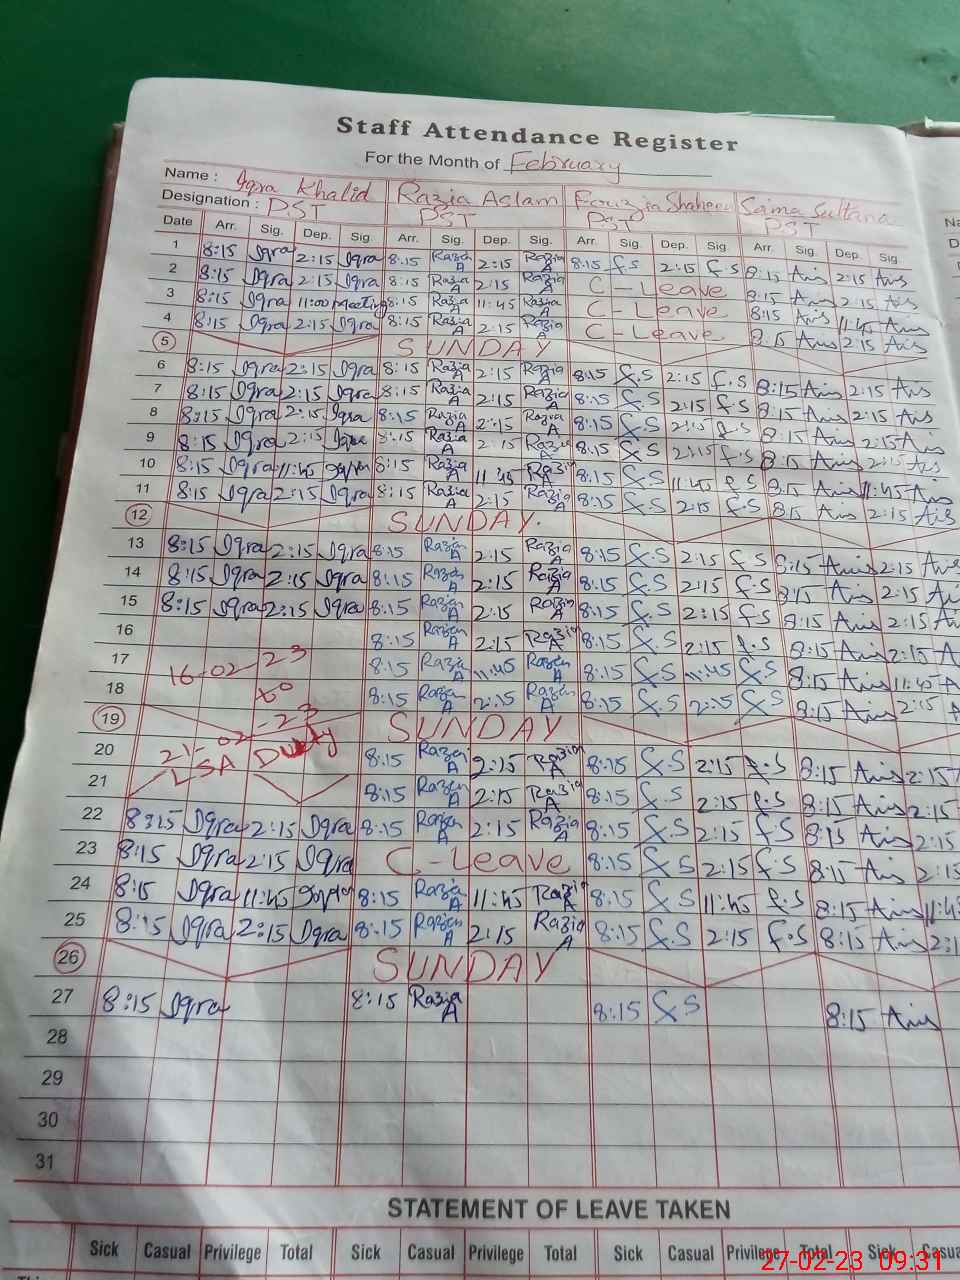 Staff Attendance Register
For the Month of February
Name : Iqra Khalid Razia Aslam Fouzia Shaheen Saima Sultana
Designation : PST PST PST PST
Date Arr. Sig. Dep. Sig. Arr. Sig. Dep. Sig. Arr. Sig. Dep. Sig. Arr. Sig. Dep. Sig.
1 8:15 Iqra 2:15 Iqra 8:15 Razia A 2:15 Razia A 8:15 f.S 2:15 f.S 8:15 Ais 2:15 Ais
2 8:15 Iqra 2:15 Iqra 8:15 Razia A 2:15 Razia A C-Leave 8:15 Ais 2:15 Ais
3 8:15 Iqra 11:00 meeting 8:15 Razia A 11:45 Razia A C-Leave 8:15 Ais 11:45 Ais
4 8:15 Iqra 2:15 Iqra 8:15 Razia A 2:15 Razia A C-Leave 8:15 Ais 2:15 Ais
5 SUNDAY
6 8:15 Iqra 2:15 Iqra 8:15 Razia A 2:15 Razia A 8:15 f.S 2:15 f.S 8:15 Ais 2:15 Ais
7 8:15 Iqra 2:15 Iqra 8:15 Razia A 2:15 Razia A 8:15 f.S 2:15 f.S 8:15 Ais 2:15 Ais
8 8:15 Iqra 2:15 Iqra 8:15 Razia A 2:15 Razia A 8:15 f.S 2:15 f.S 8:15 Ais 2:15 Ais
9 8:15 Iqra 2:15 Iqra 8:15 Razia A 2:15 Razia A 8:15 f.S 2:15 f.S 8:15 Ais 2:15 Ais
10 8:15 Iqra 11:45 8:15 Razia A 11:45 Razia 8:15 f.S 11:45 f.S 8:15 Ais 11:45 Ais
11 8:15 Iqra 2:15 Iqra 8:15 Razia A 2:15 Razia A 8:15 f.S 2:15 f.S 8:15 Ais 2:15 Ais
12 SUNDAY.
13 8:15 Iqra 2:15 Iqra 8:15 Razia A 2:15 Razia A 8:15 f.S 2:15 f.S 8:15 Ais 2:15 Ais
14 8:15 Iqra 2:15 Iqra 8:15 Razia A 2:15 Razia A 8:15 f.S 2:15 f.S 8:15 Ais 2:15 Ais
15 8:15 Iqra 2:15 Iqra 8:15 Razia A 2:15 Razia A 8:15 f.S 2:15 f.S 8:15 Ais 2:15 Ais
16 8:15 Razia A 2:15 Razia A 8:15 f.S 2:15 f.S 8:15 Ais 2:15 A
17 16-02-23 8:15 Razia A 11:45 Razia A 8:15 f.S 11:45 f.S 8:15 Ais 11:45 A
18 to 8:15 Razia A 2:15 Razia A 8:15 f.S 2:15 f.S 8:15 Ais 2:15 A
19 21-02-23 SUNDAY
20 LSA Duty 8:15 Razia A 2:15 Razia A 8:15 f.S 2:15 f.S 8:15 Ais 2:15
21 8:15 Razia A 2:15 Razia A 8:15 f.S 2:15 f.S 8:15 Ais 2:15
22 8:15 Iqra 2:15 Iqra 8:15 Razia A 2:15 Razia A 8:15 f.S 2:15 f.S 8:15 Ais 2:15
23 8:15 Iqra 2:15 Iqra C-Leave 8:15 f.S 2:15 f.S 8:15 Ais 2:15
24 8:15 Iqra 11:45 8:15 Razia A 11:45 Razia A 8:15 f.S 11:45 f.S 8:15 Ais 11:45
25 8:15 Iqra 2:15 Iqra 8:15 Razia A 2:15 Razia A 8:15 f.S 2:15 f.S 8:15 Ais 2:1
26 SUNDAY
27 8:15 Iqra 8:15 Razia A 8:15 f.S 8:15 Ais
28
29
30
31
STATEMENT OF LEAVE TAKEN
Sick Casual Privilege Total Sick Casual Privilege Total Sick Casual Privilege Total Sick Casua
27-02-23 09:31